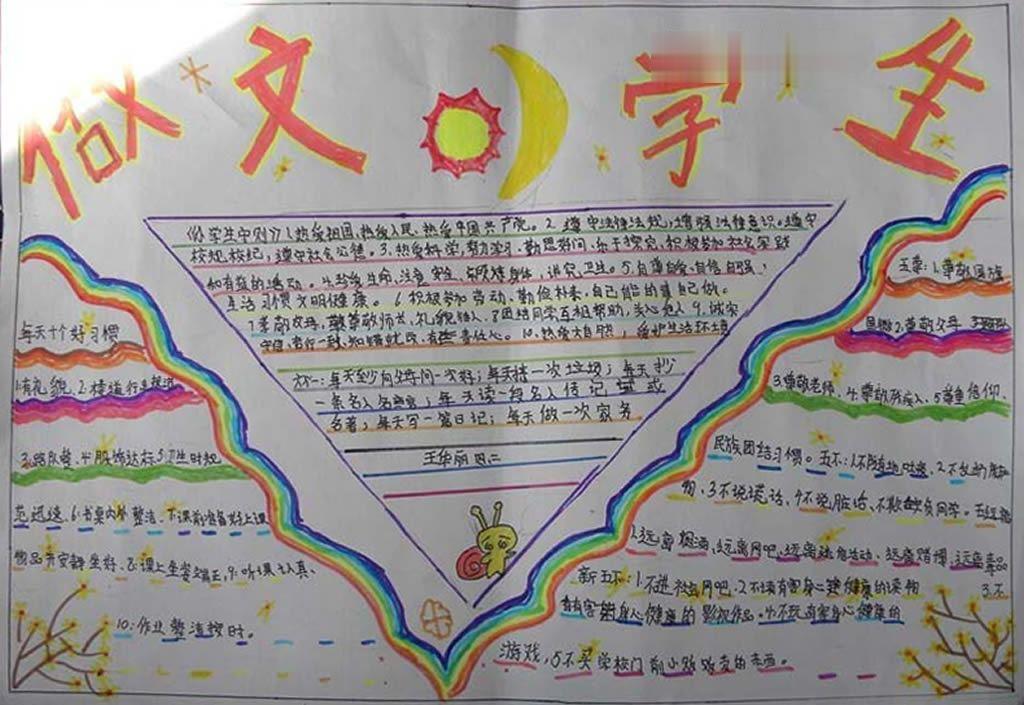 做文学生
《学生守则》1.热爱祖国,热爱人民,热爱中国共产党。2.遵守法律法规,增强法律意识。遵守
校规校纪,遵守社会公德。3.热爱科学,努力学习,勤思好问,乐于探究,积极参加社会实践
和有益的活动。4.珍爱生命,注意安全,锻炼身体,讲究卫生。5.自尊自爱,自信自强,
生活习惯文明健康。6.积极参加劳动,勤俭朴素,自己能的事自己做。
7.孝敬父母,尊敬师长,礼貌待人。8.团结同学,互相帮助,关心他人。9.诚实
守信,言行一致,知错就改,有责任心。10.热爱大自然,爱护生活环境
每天到
每天持一次垃圾;每天抄
一条名人名言;每天读一段名人传记或
名著;每天写一篇日记;每天做一次家务
王华丽
每天十个好习惯
1.有礼貌,2.楼道行走
3.路队整,4.服饰达标5.卫生时规
范迅速,6.书桌内外整洁,7.课前准备好上课
物品并安静坐好,8.课上坐姿端正,9.听课认真、
10:作业整洁按时。
五尊:1.尊敬国旗
国徽2.尊敬父母
3.尊敬老师,4.尊敬残疾人,5.尊重信仰、
民族团结习惯。五不:1.不随地吐痰,2.不乱扔脏
物,3.不说谎话,4.不说脏话、不欺负同学。五远离
1.远离 远离网吧,远离迷信活动、远离赌博,远离毒品
新五不:1.不进社会网吧,2.不读有害身心健康的读物 3.不
看有害身心健康的影视作品。4.不玩有害身心健康的
游戏,5不买学校门前小路贩卖的东西。